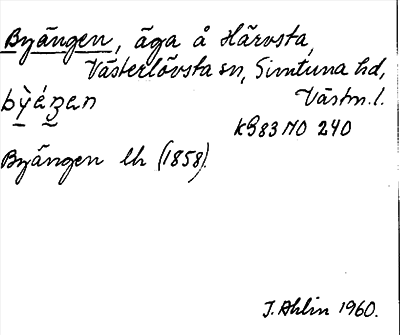 Byängen, äga å Härvsta,
Västerlövsta sn, Simtuna hd,
Västm. l.
bỳáŋen
k983 NO 240
Byängen lh (1858).
J. Ahlin 1960.